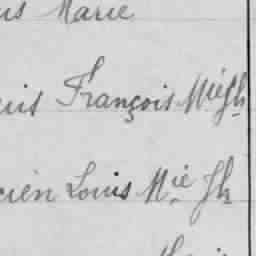 uis Marie
uis François M.ie Jh
cien Louis M.ie Jh